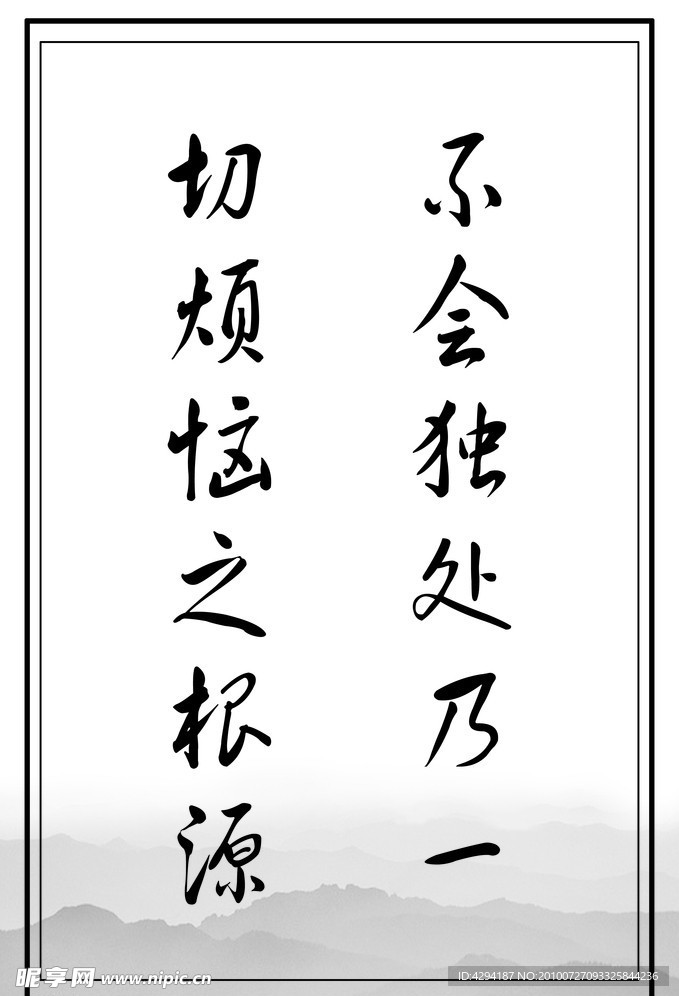 不会独处乃一
切烦恼之根源
昵享网 www.nipic.cn
ID:4294187 NO:20100727093325844236